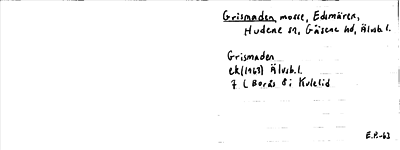 Grismaden, mosse, Edsmären,
Hudene sn, Gäsene hd, Älvsb.l.
Grismaden
ek(1963) Älvsb.l.
7 C Borås 8 i Kulelid
E.P.-63